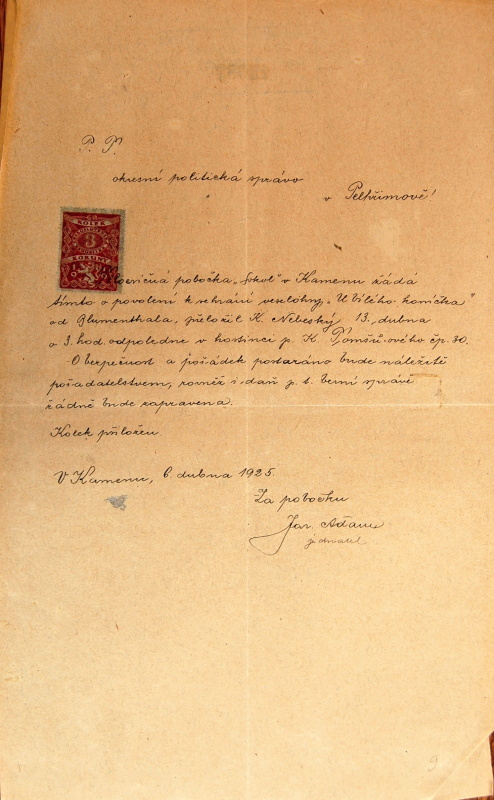 P. P.
okresní politická správo
v Pelhřimově!
KOLEK
3
KORUNY
pobočka „Sokol" v Kamenu žádá
tímto o povolení k sehrání veselohry „U bílého koníčka"
od Blumenthala, přeložil K. Nebeský, 13. dubna
o 3. hod. odpoledne v hostinci p. K. Tomšů-ového čp. 30.
O bezpečnost a pořádek postaráno bude náležitě
pořadatelstvem, rovněž i daň p. t. berní správě
žádně bude zapravena.
Kolek přiložen.
V Kamenu, 6. dubna 1925.
Za pobočku
Jar. Adam
jednatel